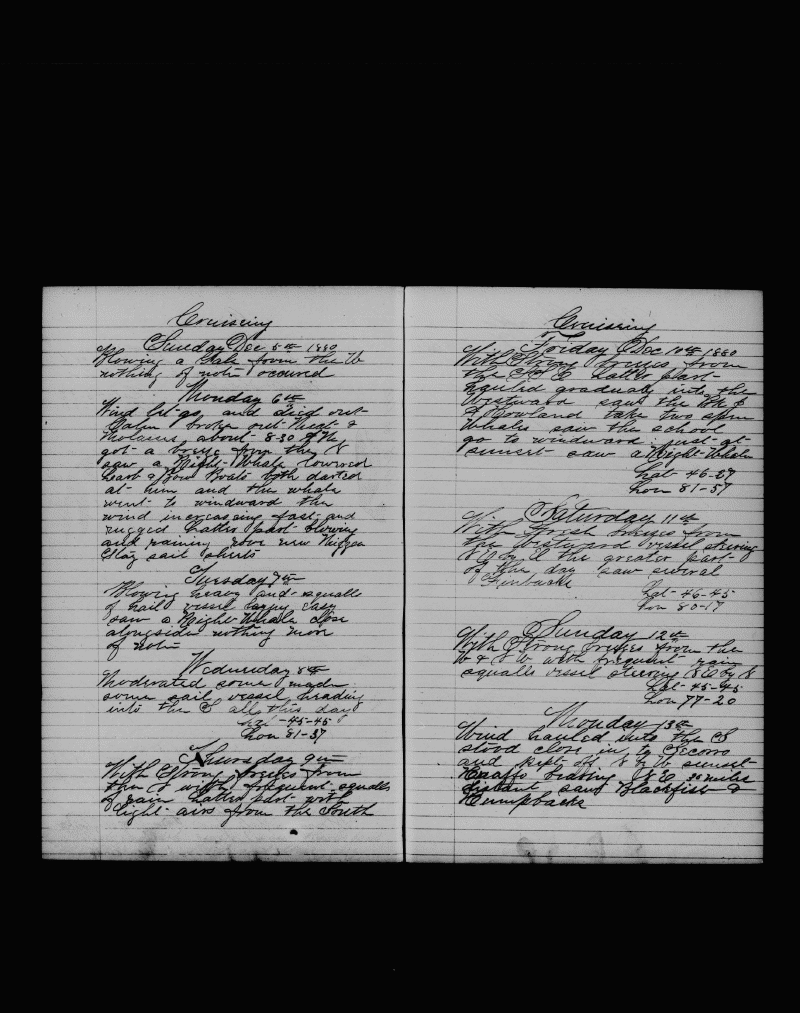 Cruising
Sunday Dec 5th 1880
Blowing a Gale from the W
nothing of note occured
Monday 6th
Wind let go and died out
Calm broke out meat &
molasses about 8-30 A M
got a breeze from the N
saw a Right Whale lowered
Larb & Bow Boats both darted
at him and the whale
went to windward the
wind increasing fast and
rugged Latter part blowing
and raining
sail sheets
Tuesday 7th
Blowing heavy and squalls
of hail vessel laying easy
saw a Right Whale close
alongside nothing more
of note
Wednesday 8th
Moderated some made
some sail vessel heading
into the S all this day
Lat-45-45
Lon 81-37
Thursday 9th
With Strong breezes from
the N with frequent squalls
of rain Latter part with
light airs from the South
Cruising
Friday Dec 10th 1880
With Strong breezes from
the Latter part
hauled gradually into the
Westward saw the
& Rowland take two sperm
Whales saw the school
go to windward just at
sunset saw a Right Whale
Lat-46-27
Lon 81-57
Saturday 11th
With fresh breezes from
the Westward vessel steering
N E by E the greater part
of the day saw several
Finbacks
Lat-46-45
Lon 80-17
Sunday 12th
With Strong breezes from the
W & S W with frequent rain
squalls vessel steering N E by N
Lat-45-45
Lon 77-20
Monday 13th
Wind hauled into the S
stood close in to
and kept off N by W sunset
bearing N E 30 miles
distant saw Blackfish &
Humpbacks